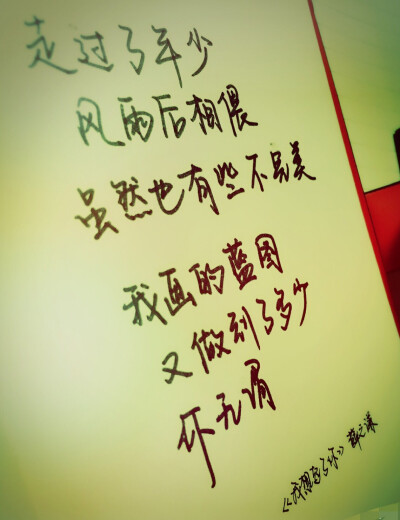 走过了年少
风雨后相偎
虽然也有些不完美
我画的蓝图
又做到了多少
你无谓
《我想起了你》薛之谦